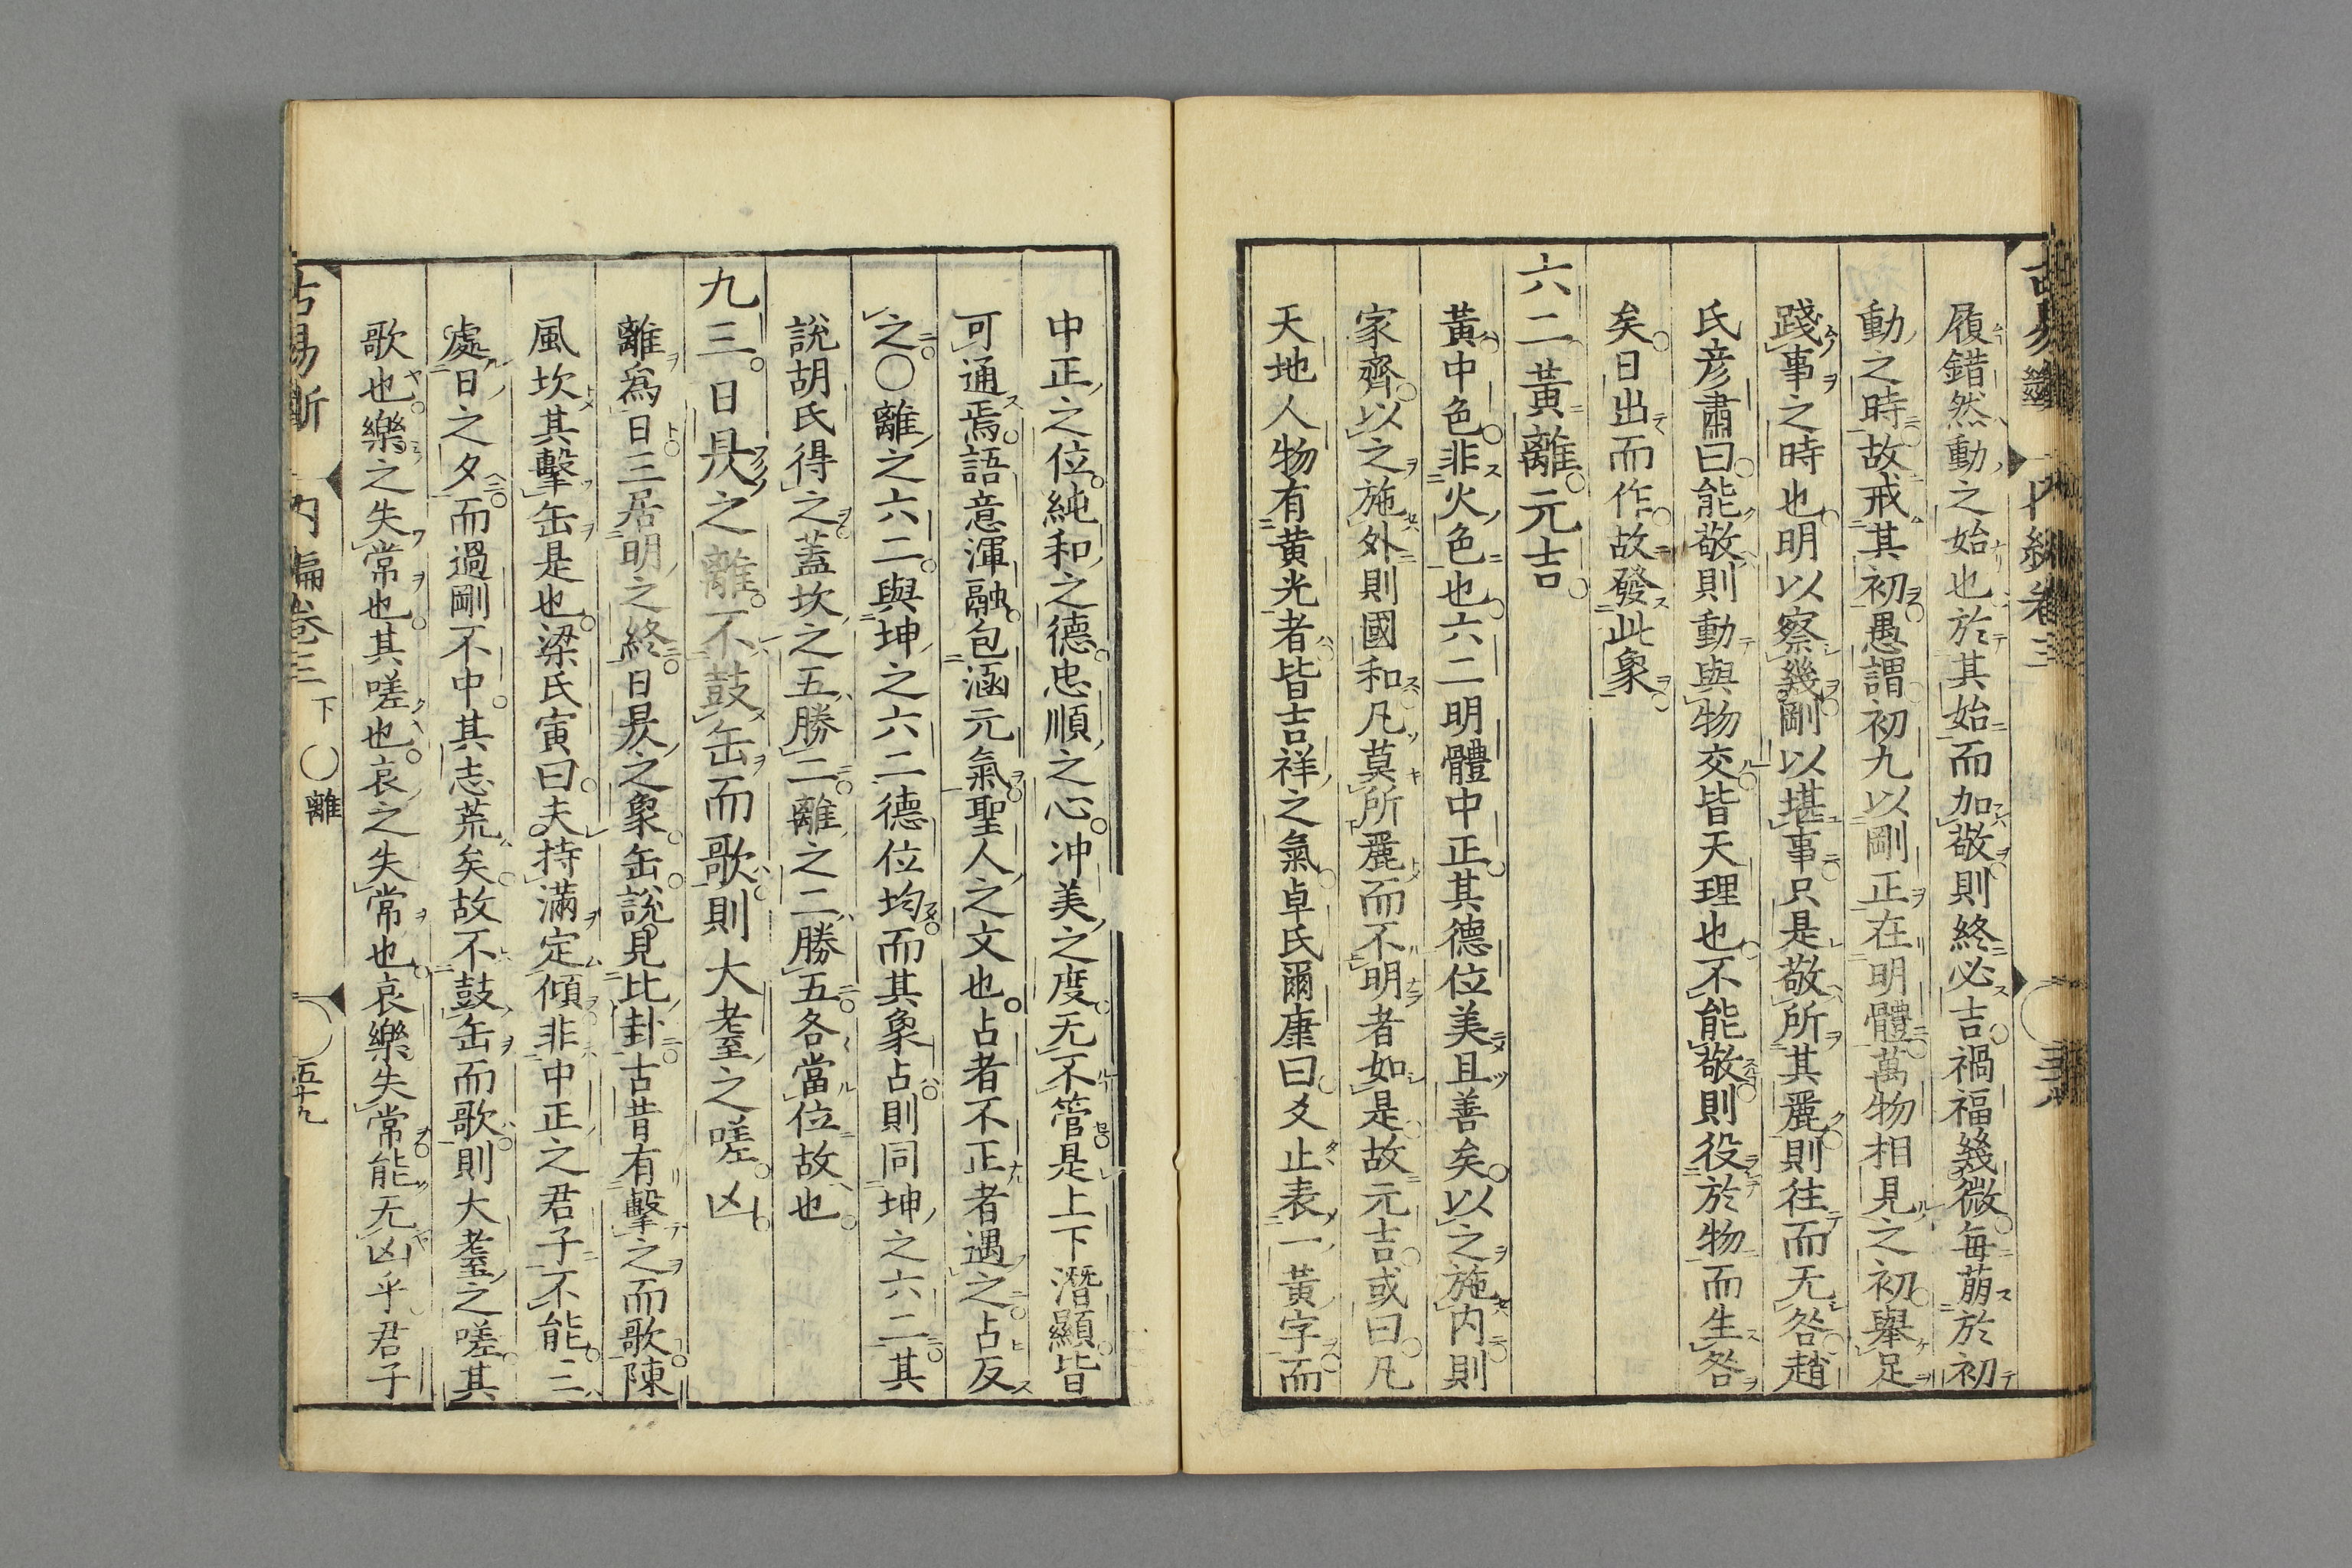 履錯然動之始也於其始而加敬則終必吉禍福幾微每萠於初
動之時故戒其初愚謂初九以剛正在明體萬物相見之初舉足
踐事之時也明以察幾剛以堪事只是敬所其麗則往而无咎趙
氏彦肅曰能敬則動與物交皆天理也不能敬則役於物而生咎
矣日出而作故發此象
六二黃離元吉
黃中色非火色也六二明體中正其德位美且善矣以之施内則
家齊以之施外則國和凡莫所麗而不明者如是故元吉或曰凡
天地人物有黄光者皆吉祥之氣卓氏爾康曰爻止表一黃字而
中正之位純和之德忠順之心冲美之度无不管是上下潛顯皆
可通焉語意渾融包涵元氣聖人之文也占者不正者遇之占反
之○離之六二與坤之六二德位均而其象占則同坤之六二其
說胡氏得之蓋坎之五勝二離之二勝五各當位故也
九三日昃之離不鼓缶而歌則大耋之嗟凶
離爲日三居明之終日昃之象缶說見比卦古昔有擊之而歌陳
風坎其擊缶是也梁氏寅曰夫持滿定傾非中正之君子不能三
處日之夕而過剛不中其志荒矣故不鼓缶而歌則大耋之嗟其
歌也樂之失常也其嗟也哀之失常也哀樂失常能无凶乎君子
古易斷　内編卷三　下　○離　五十九